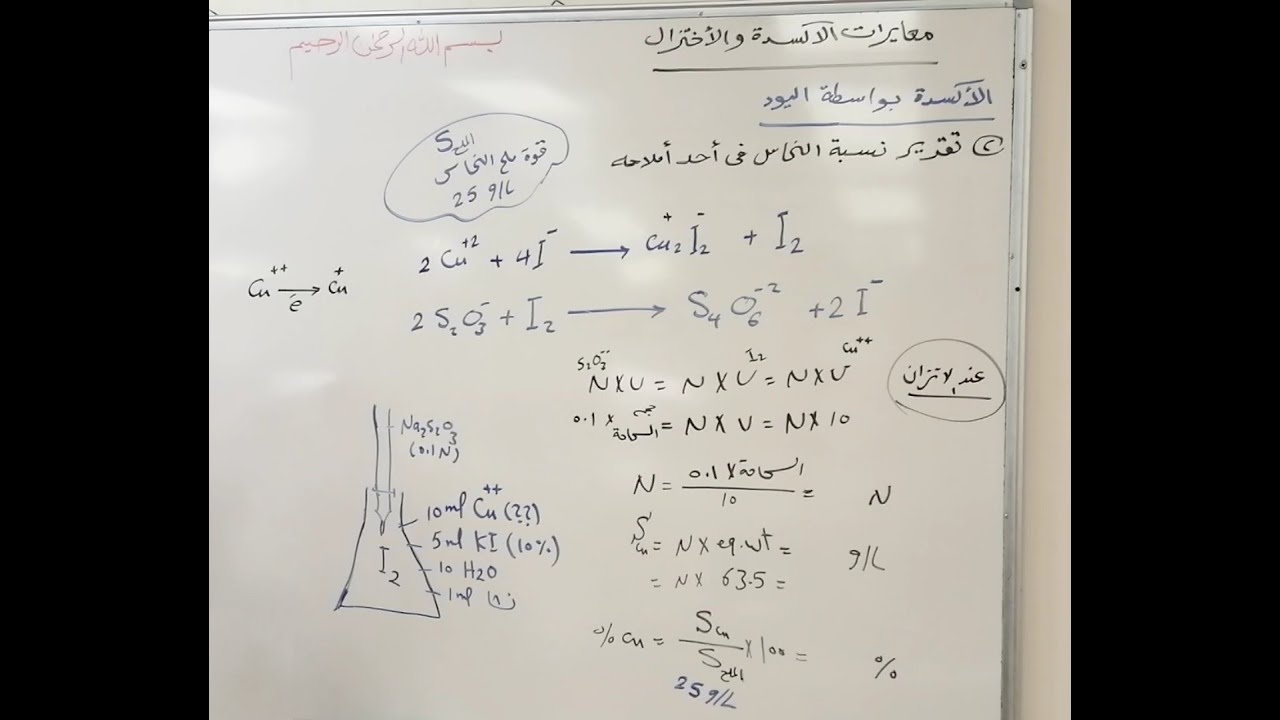 بسم الله الرحمن الرحيم
معايرات الاكسدة والأختزال
الأكسدة بواسطة اليود
② تقدير نسبة النحاس فى أحد أملاحه
S الملح
قوة ملح النحاس
25 g/L
2 Cu+2 + 4I- ⟶ Cu2+ I2- + I2
Cu++ ⟶ Cu+
e
2 S2O3- + I2 ⟶ S4O6-2 + 2I-
S2O3-- I2 Cu++
N x V = N x V = N x V
عند الاتزان
0.1 x حجم السحاحة = N x V = N x 10
N = 0.1 x السحاحة / 10 = N
S Cu = N x eq.wt = g/L
= N x 63.5 =
% Cu = S Cu / S الملح x 100 = %
25 g/L
Na2S2O3
(0.1 N)
10 ml Cu++ (??)
5 ml KI (10%)
10 H2O
1 ml
I2